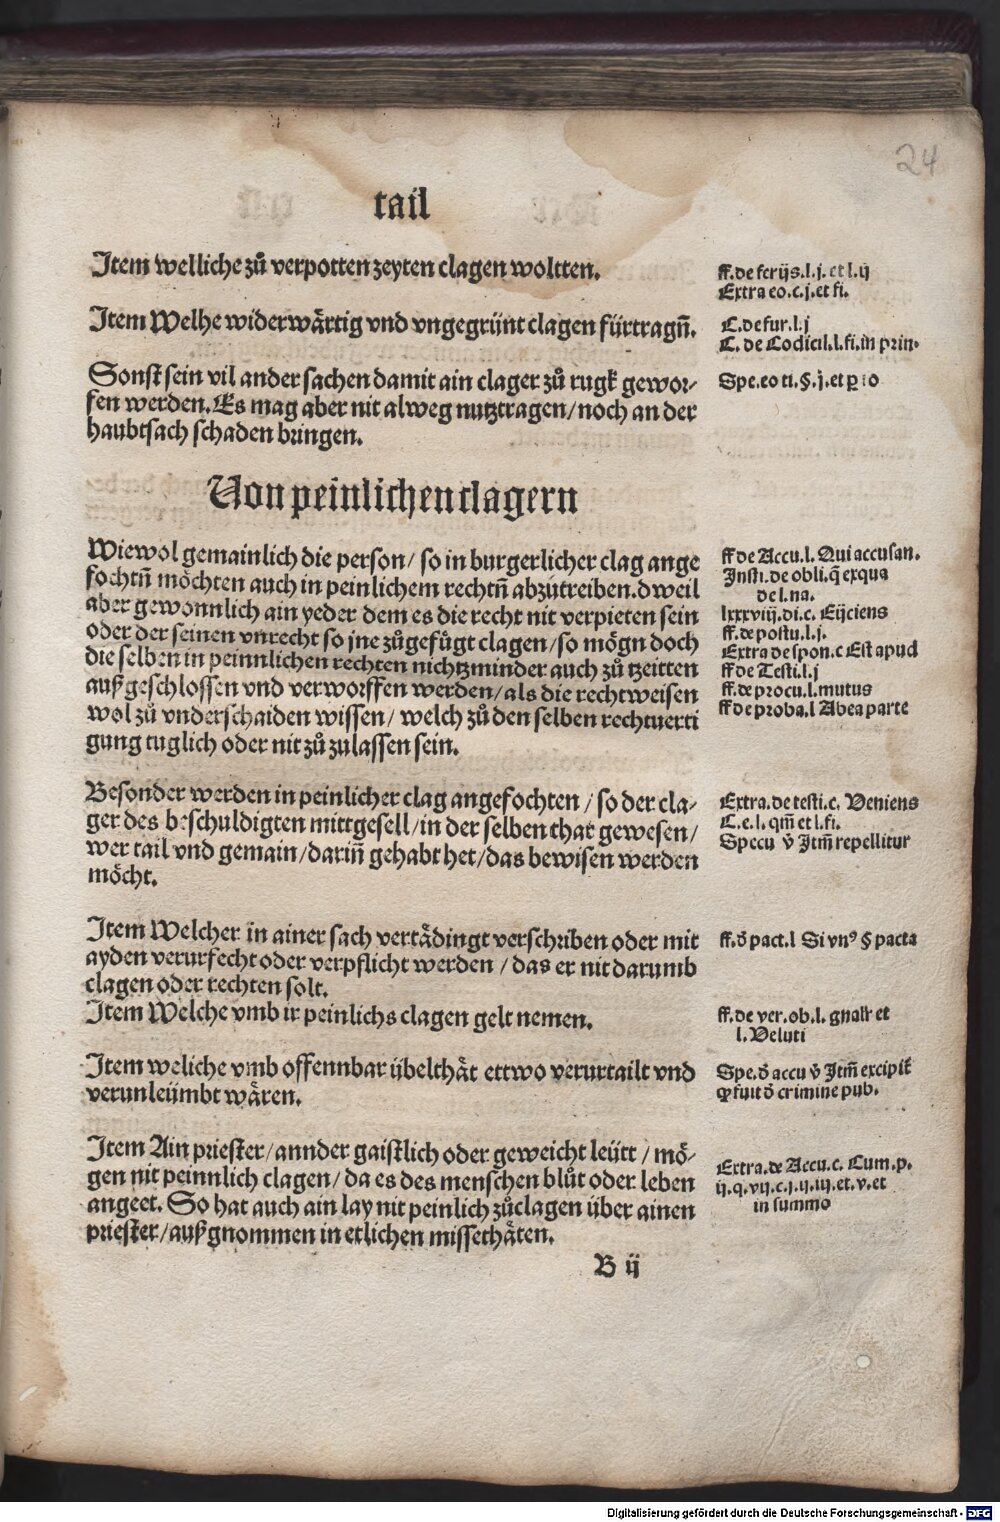 24
tail
Item welliche zů verpotten zeyten clagen woltten.
ff. de ferijs. l. j. et l. ij
Extra eo. c. j. et fi.
Item Welhe widerwårtig vnd vngegrünt clagen fürtragñ.
C. de fur. l. j
C. de Codicil. l. fi. in prin.
Sonst sein vil ander sachen damit ain clager zů rugk gewor-
fen werden. Es mag aber nit alweg nutztragen / noch an der
haubtsach schaden bringen.
Spe. eo ti. §. j. et
Von peinlichen clagern
Wiewol gemainlich die person / so in burgerlicher clag ange
fochtñ möchten auch in peinlichem rechtñ abzůtreiben. dweil
aber gewonnlich ain yeder dem es die recht nit verpieten sein
oder der seinen vnrecht so jne zůgefůgt clagen / so mögn doch
die selben in peinnlichen rechten nichtzminder auch zů tzeitten
außgeschlossen vnd verworffen werden / als die rechtweisen
wol zů vnderschaiden wissen / welch zů den selben rechtuerti
gung tuglich oder nit zů zulassen sein.
ff de Accu. l. Qui accusan.
Insti. de obli. q̃ exqua
de l. na.
lxxxviij. di. c. Eijciens
ff. de postu. l. j.
Extra de spon. c Est apud
ff de Testi. l. j
ff. de procu. l. mutus
ff de proba. l Ab ea parte
Besonder werden in peinlicher clag angefochten / so der cla-
ger des beschuldigten mittgesell / in der selben that gewesen /
wer tail vnd gemain / darinñ gehabt het / das bewisen werden
möcht.
Extra. de testi. c. Veniens
C. e. l. qm̃ et l. fi.
Specu v̊ Itm̃ repellitur
Item Welcher in ainer sach vertådingt verschriben oder mit
ayden verurfecht oder verpflicht werden / das er nit darumb
clagen oder rechten solt.
ff. đ pact. l Si vnꝰ § pacta
Item Welche vmb ir peinlichs clagen gelt nemen.
ff. de ver. ob. l. gnalr et
l. Veluti
Item weliche vmb offennbar übelthåt ettwo verurtailt vnd
verunleümbt wåren.
Spe. đ accu v̊ Itm̃ excipit̃
ꝙ fuit đ crimine pub.
Item Ain priester / annder gaistlich oder geweicht leütt / mö-
gen nit peinnlich clagen / da es des menschen blůt oder leben
angeet. So hat auch ain lay nit peinlich zůclagen über ainen
priester / außgnommen in etlichen missethåten.
Extra. de Accu. c. Cum. p.
ij. q. vij. c. j. ij. iij. et. v. et
in summo
B ij
Digitalisierung gefördert durch die Deutsche Forschungsgemeinschaft - DFG